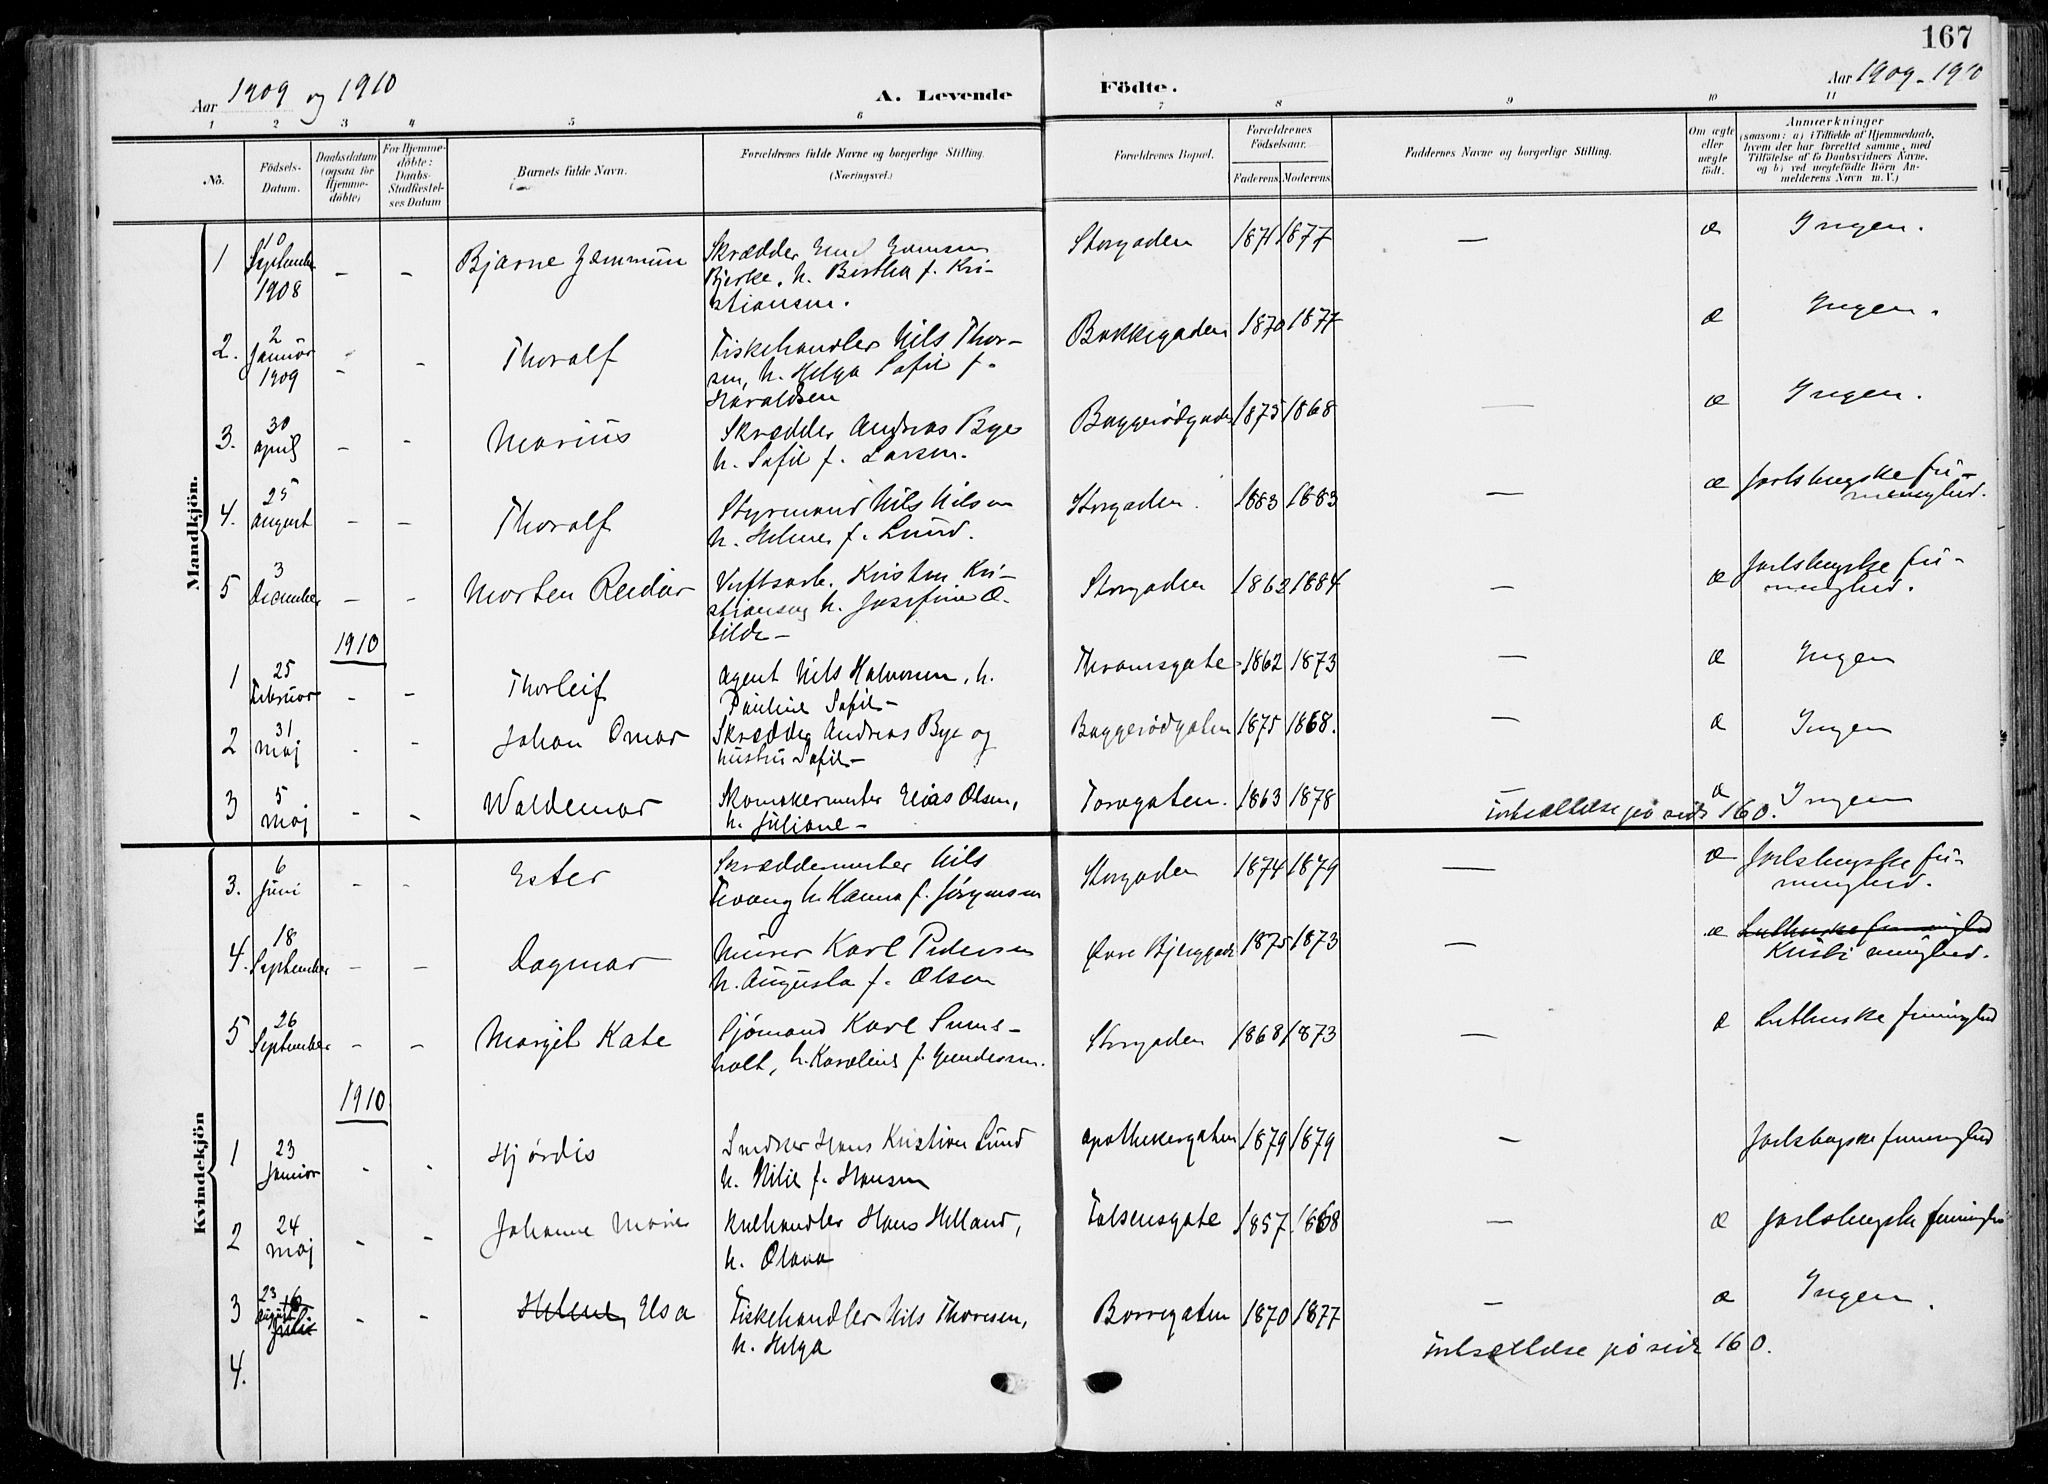 167
Aar 1909 og 1910
A. Levende
Födte.
Aar 1909-1910
1 2 3 4 5 6 7 8 9 10 11
No.
Födsels-Datum.
Daabsdatum (ogsaa for Hjemme-döbte)
For Hjemme-döbte: Daabs-Stadfæstel-ses Datum
Barnets fulde Navn.
Forældrenes fulde Navne og borgerlige Stilling. (Næringsvei.)
Forældrenes Bopæl.
Forældrenes Födselsaar.
Faderens. Moderens.
Faddernes Navne og borgerlige Stilling.
Om ægte eller uægte födt.
Anmærkninger
(saasom: a) i Tilfælde af Hjemmedaab,
hvem der har forrettet samme, med
Tilföielse af to Daabsvidners Navne,
og b) ved uægtefödte Börn An-
melderens Navn m. V.)
Mandkjön.
1 10 September 1908 - - Bjarne
Skrædder
Bjerke, h. Bertha f. Kri-
stiansen.
Storgaden 1871 1877 — æ Ingen.
2. 2 Januar 1909 - - Thoralf
Fiskehandler Nils Thor-
sen, h. Helga Sofie f.
Haraldsen
Bakkegaden 1870 1877 æ Ingen.
3. 30 april - - Marius
Skrædder Andreas Bye
h. Sofie f. Larsen.
Baggerödgade 1875 1868 — æ Ingen.
4. 25 august - - Thoralf
Styrmand Nils Nilsen
h. Helene f. Lund.
Storgaden. 1883 1883 — æ Jarlsbergske fri-
menighed.
5 3 December - - Morten Reidar
Verftsarb. Kristen Kri-
stiansen h. Josefine O-
tilde -
Storgaden 1862 1884 — æ Jarlsbergske fri-
menighed.
1910
1 25 Februar - - Thorleif
Agent Nils Halvorsen, h.
Pauline Sofie -
1862 1873 — æ Ingen
2 31 maj - - Johan Omar
Skrædder Andreas Bye og
hustru Sofie -
Baggerödgaten 1875 1868. — æ Ingen
3 5 maj - - Waldemar
Skomakermester Elias Olsen,
h. Juliane -
Torvgaten. 1863 1878 — æ Ingen
Fortsættelse på side 160.
Kvindekjön
3. 6 Juni - - Ester
Skræddermester Nils
Tevang h. Hanna f. Jörgensen
Storgaden 1874 1879 — æ Jarlsbergske fri-
menighed.
4. 18 September - - Dagmar
Murer Karl Pedersen
h. Augusta f. Olsen
Övre 1875 1873 — æ Lutherske frimenighed
Kristi menighed.
5 26 September - - Margit Kate
Sjömand Karl
holt, h. Karoline f. Gundersen.
Storgaden 1868 1873 — æ Lutherske frimenighed
1910
1 23 Januar - - Hjördis
Snedker Hans Kristian Lund
h. Milie f. Hansen
Apothekergaten 1879 1879 — Jarlsbergske frimenighed
2 24 maj - - Johanne Marie
Kulhandler Hans Helland,
h. Olava
Falsensgate 1857 1868 — æ Jarlsbergske frimenighed
3 23 August 16 Juli - - Helene, Elsa
Fiskehandler Nils Thoresen,
h. Helga
Borregaten 1870 1877 — æ Ingen.
Fortsættelse på side 160.
4.